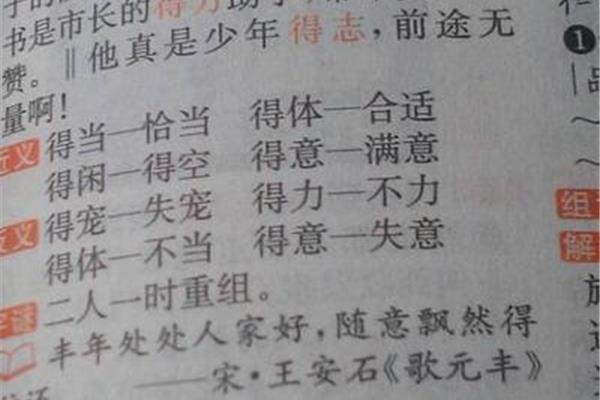 书是市长的得力助手
赞。‖他真是少年得志，前途无
量啊！
近义 得当—恰当 得体—合适
得闲—得空 得意—满意
反义 得宠—失宠 得力—不力
得体—不当 得意—失意
字谜 二人一时重组。
丰年处处人家好，随意飘然得
——宋·王安石《歌元丰》
❶
组
解